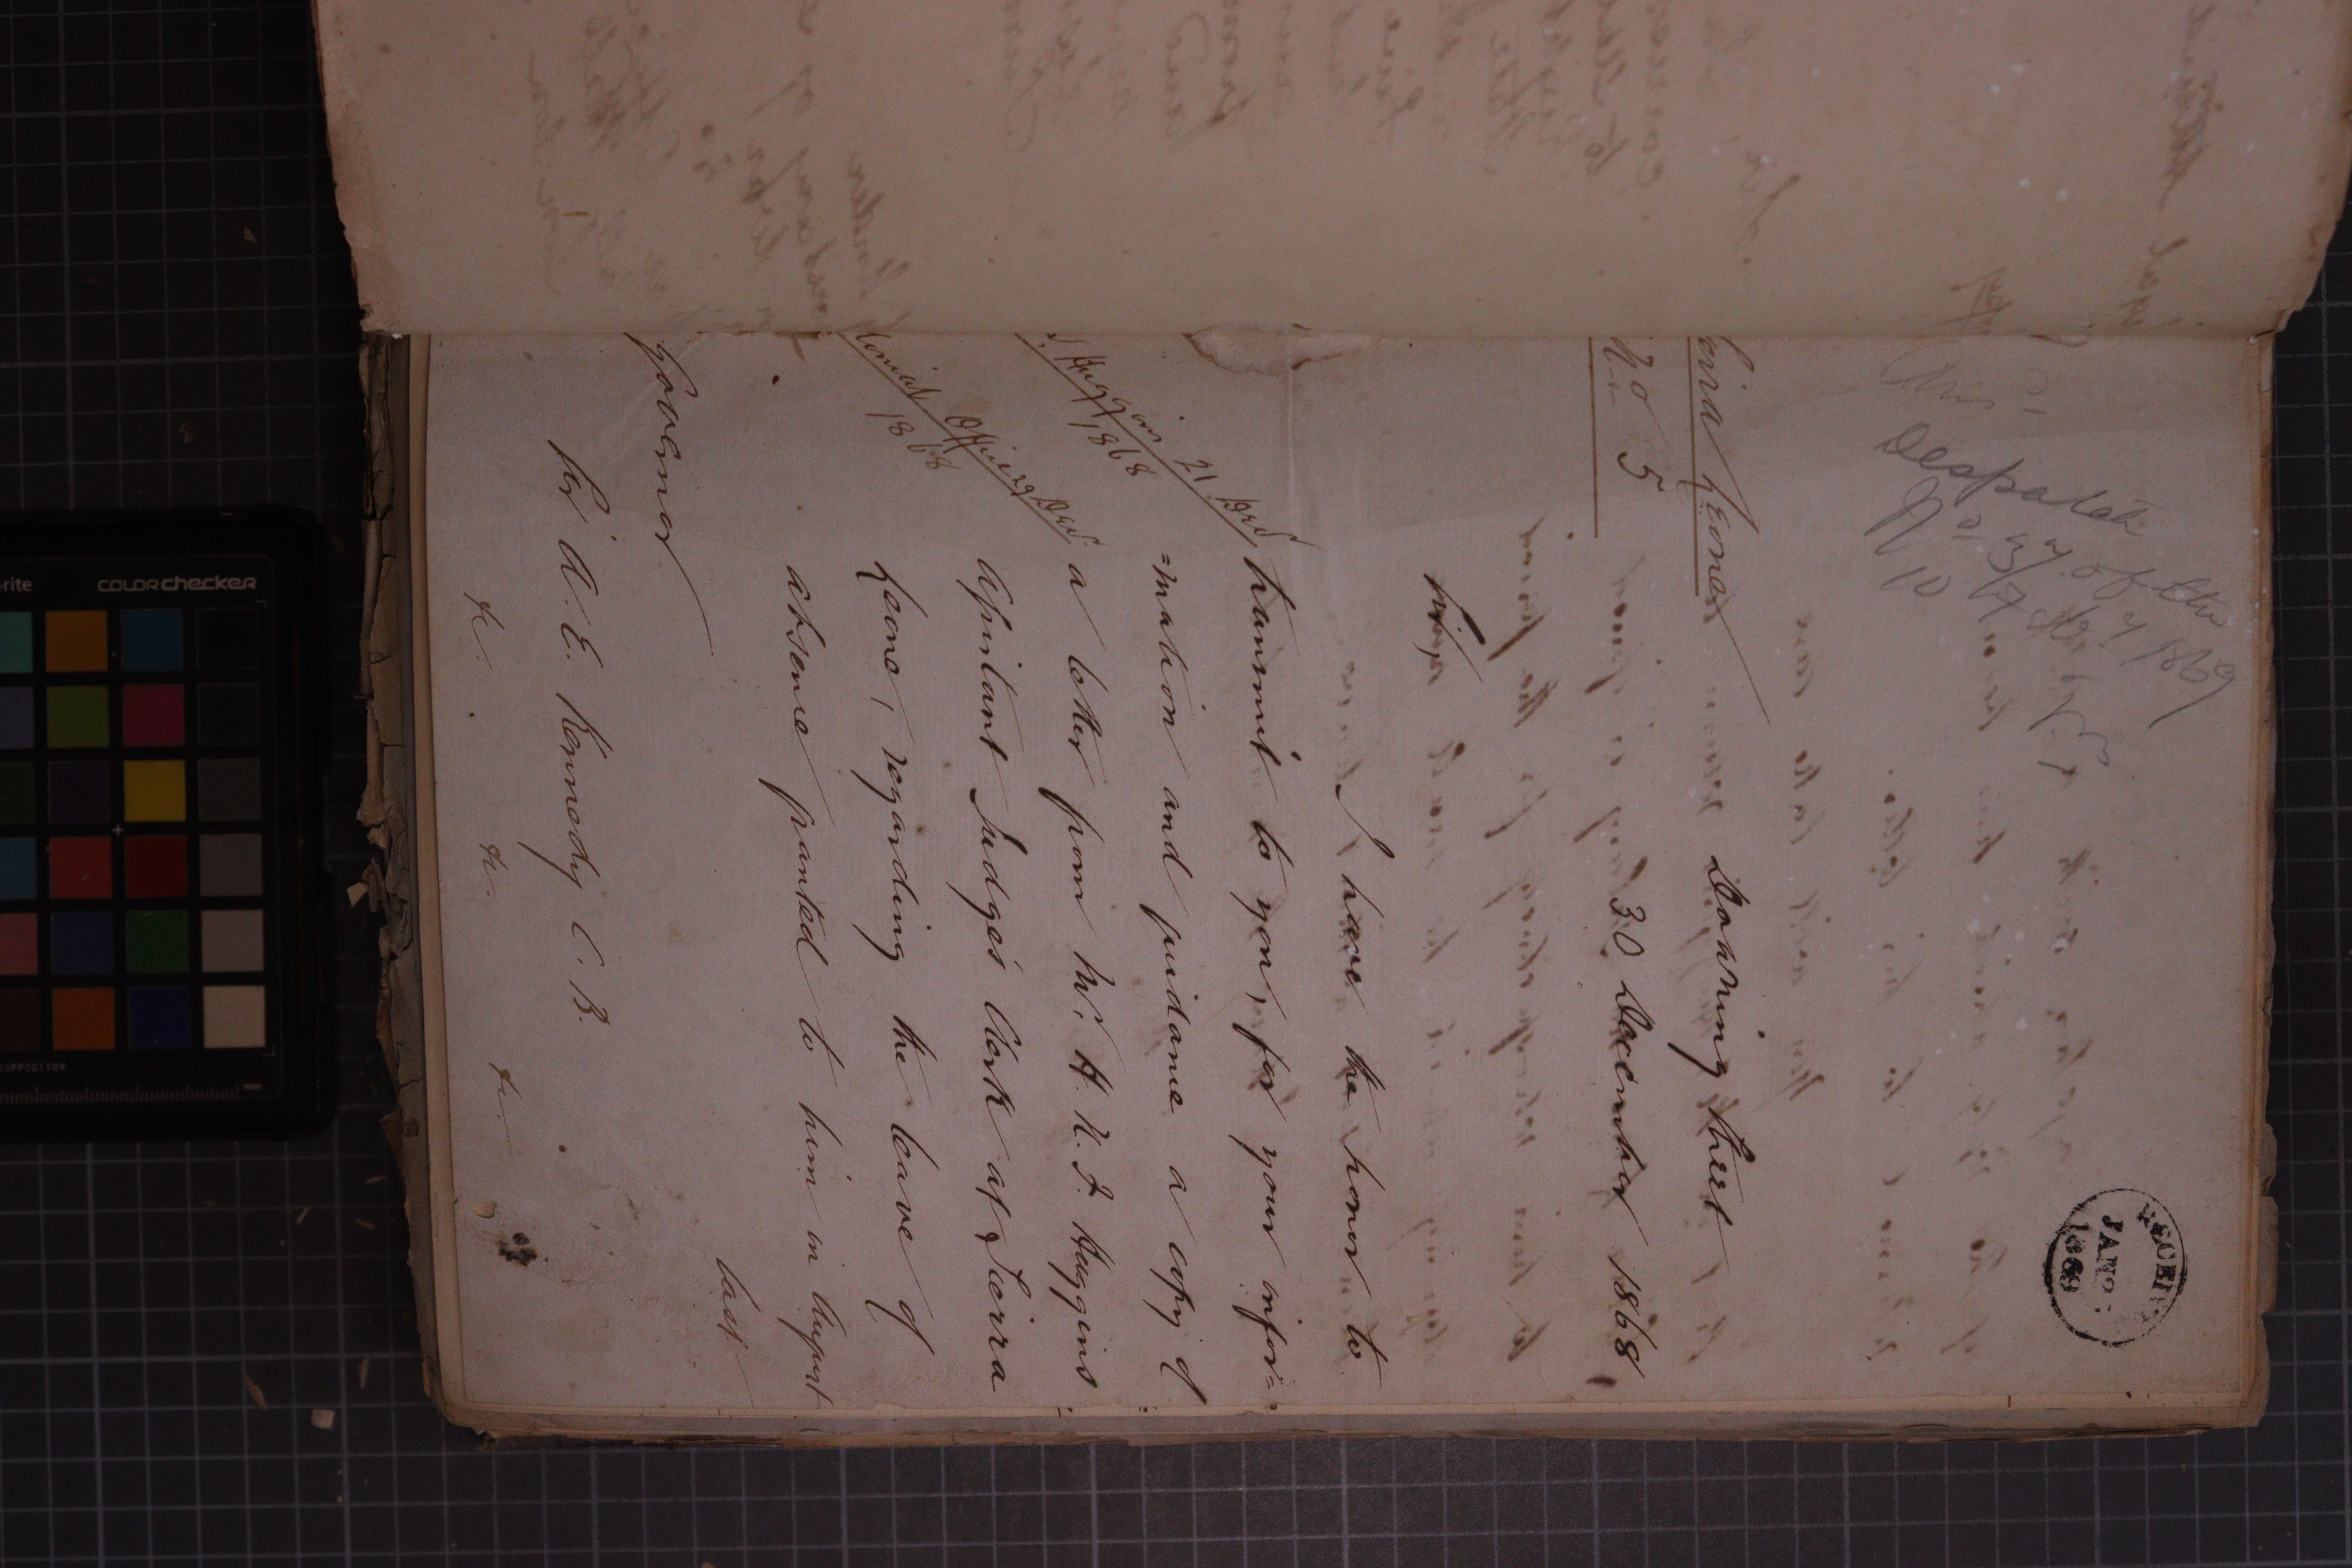 Despatch
of the
1869
RECEIVED
JAN
1869
Sierra Leone
No 5
Downing Street
30 December 1868
Sir,
I have the honor to
transmit to you, for your infor=
=mation and guidance a copy of
a letter from Mr. H. N. J. Huggins
Assistant Judge's Clerk at Sierra
Leone, regarding the leave of
absence granted to him in August
last
Huggins 21 Decr
1868
Officer Decr
1868
Governor
Sir A. E. Kennedy C. B.
&c. &c. &c.
colorchecker